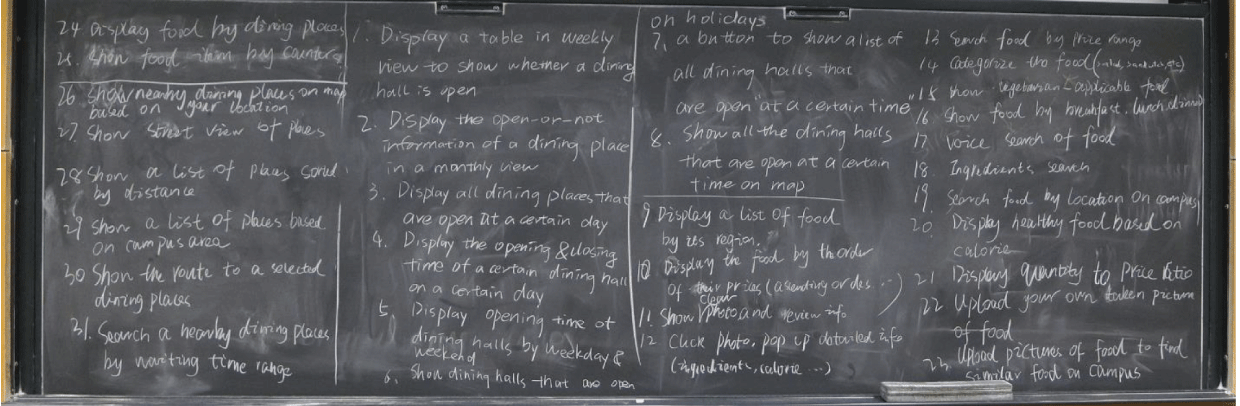 24 Display food by dining places
25. Show food item by counters
26 Show nearby dining places on map
based on your location
27 Show street view of places
28 Show a list of places sorted
by distance
29 Show a list of places based
on campus area
30 Show the route to a selected
dining places
31. Search a nearby dining places
by waiting time range
1. Display a table in weekly
view to show whether a dining
hall is open
2. Display the open-or-not
information of a dining place
in a monthly view
3. Display all dining places that
are open at a certain day
4. Display the opening & closing
time of a certain dining hall
on a certain day
5. Display opening time of
dining halls by weekday &
weekend
6. Show dining halls that are open
on holidays
7. a button to show a list of
all dining halls that
are open at a certain time
8. Show all the dining halls
that are open at a certain
time on map
9 Display a list of food
by its region.
10 Display the food by the order
of their prices (ascending or des...)
11. Show clear photo and review info
12 Click photo, pop up detailed info
(ingredients, calorie ...)
13 Search food by price range
14 Categorize the food
15 Show vegetarian-applicable food
16 Show food by breakfast, lunch, dinner
17. Voice search of food
18. Ingredients search
19. Search food by location on campus
20. Display healthy food based on
calorie
21 Display quantity to price ratio
22 Upload your own taken picture
of food
23. Upload pictures of food to find
similar food on campus